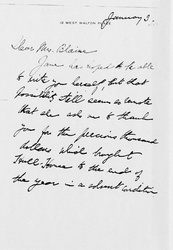 12 WEST WALTON PLACE
January 3.
Dear Mrs. Blaine
Jane has hoped to be able
to write you herself, but that
possibility still seems so remote
that she asks me to thank
you for the precious thousand
dollars which brought
Hull-House to the end of
the year in a solvent condition